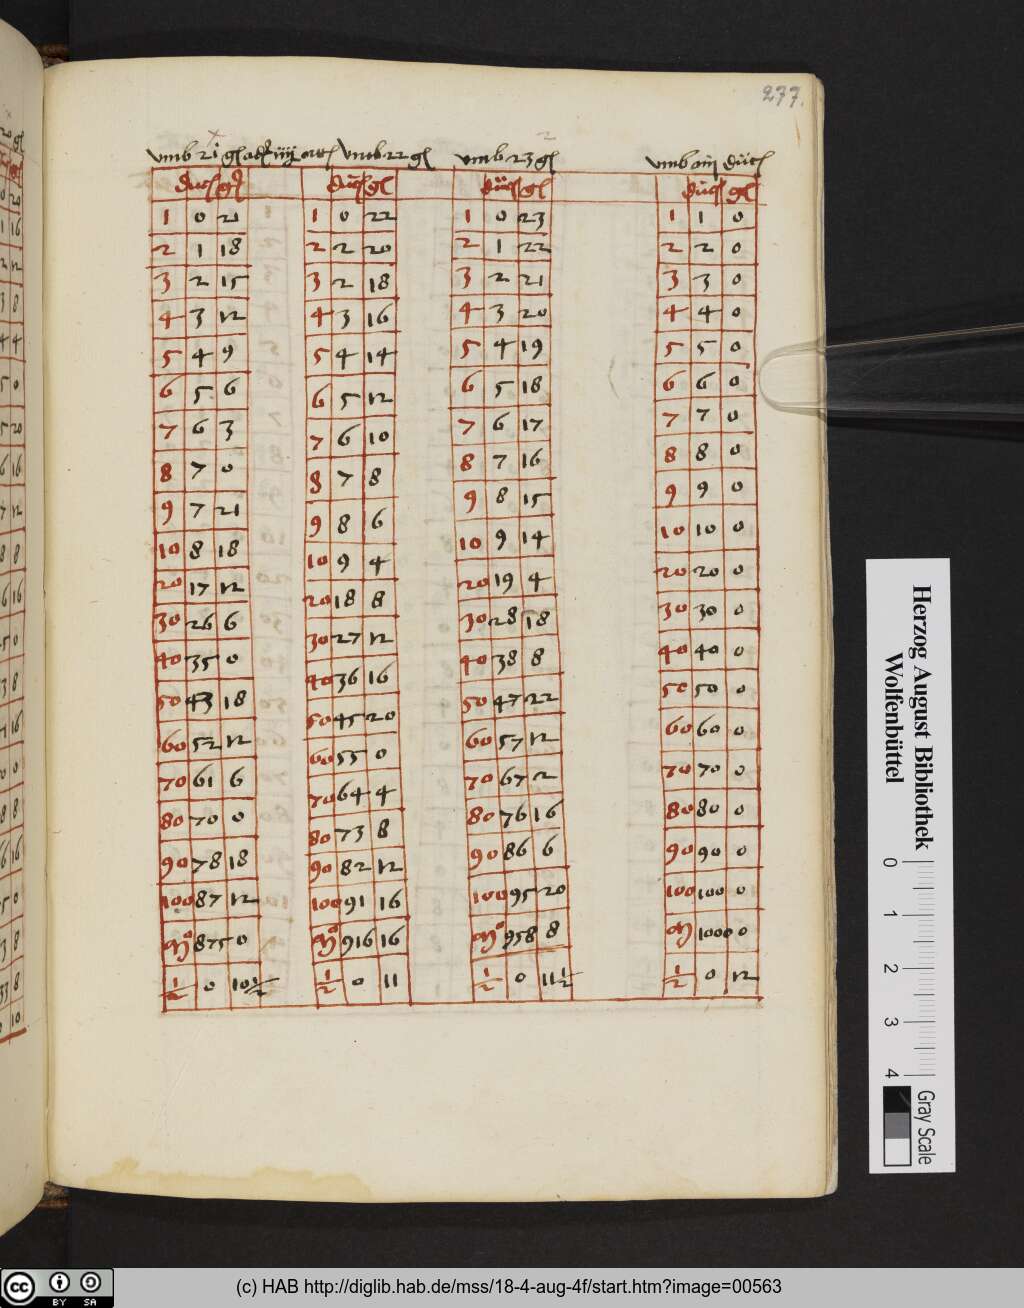 277.
vmb 21 gl vmb 22 gl vmb 23 gl vmb ain duc
duc gl duc gl duc gl duc gl
1 0 21 1 0 22 1 0 23 1 1 0
2 1 18 2 2 20 2 1 22 2 2 0
3 2 15 3 2 18 3 2 21 3 3 0
4 3 12 4 3 16 4 3 20 4 4 0
5 4 9 5 4 14 5 4 19 5 5 0
6 5 6 6 5 12 6 5 18 6 6 0
7 6 3 7 6 10 7 6 17 7 7 0
8 7 0 8 7 8 8 7 16 8 8 0
9 7 21 9 8 6 9 8 15 9 9 0
10 8 18 10 9 4 10 9 14 10 10 0
20 17 12 20 18 8 20 19 4 20 20 0
30 26 6 30 27 12 30 28 18 30 30 0
40 35 0 40 36 16 40 38 8 40 40 0
50 43 18 50 45 20 50 47 22 50 50 0
60 52 12 60 55 0 60 57 12 60 60 0
70 61 6 70 64 4 70 67 2 70 70 0
80 70 0 80 73 8 80 76 16 80 80 0
90 78 18 90 82 12 90 86 6 90 90 0
100 87 12 100 91 16 100 95 20 100 100 0
875 0 916 16 958 8 1000 0
1/2 0 10 1/2 1/2 0 11 1/2 0 11 1/2 1/2 0 12
Herzog August Bibliothek
Wolfenbüttel
0 1 2 3 4
Gray Scale
cc BY SA
(c) HAB http://diglib.hab.de/mss/18-4-aug-4f/start.htm?image=00563